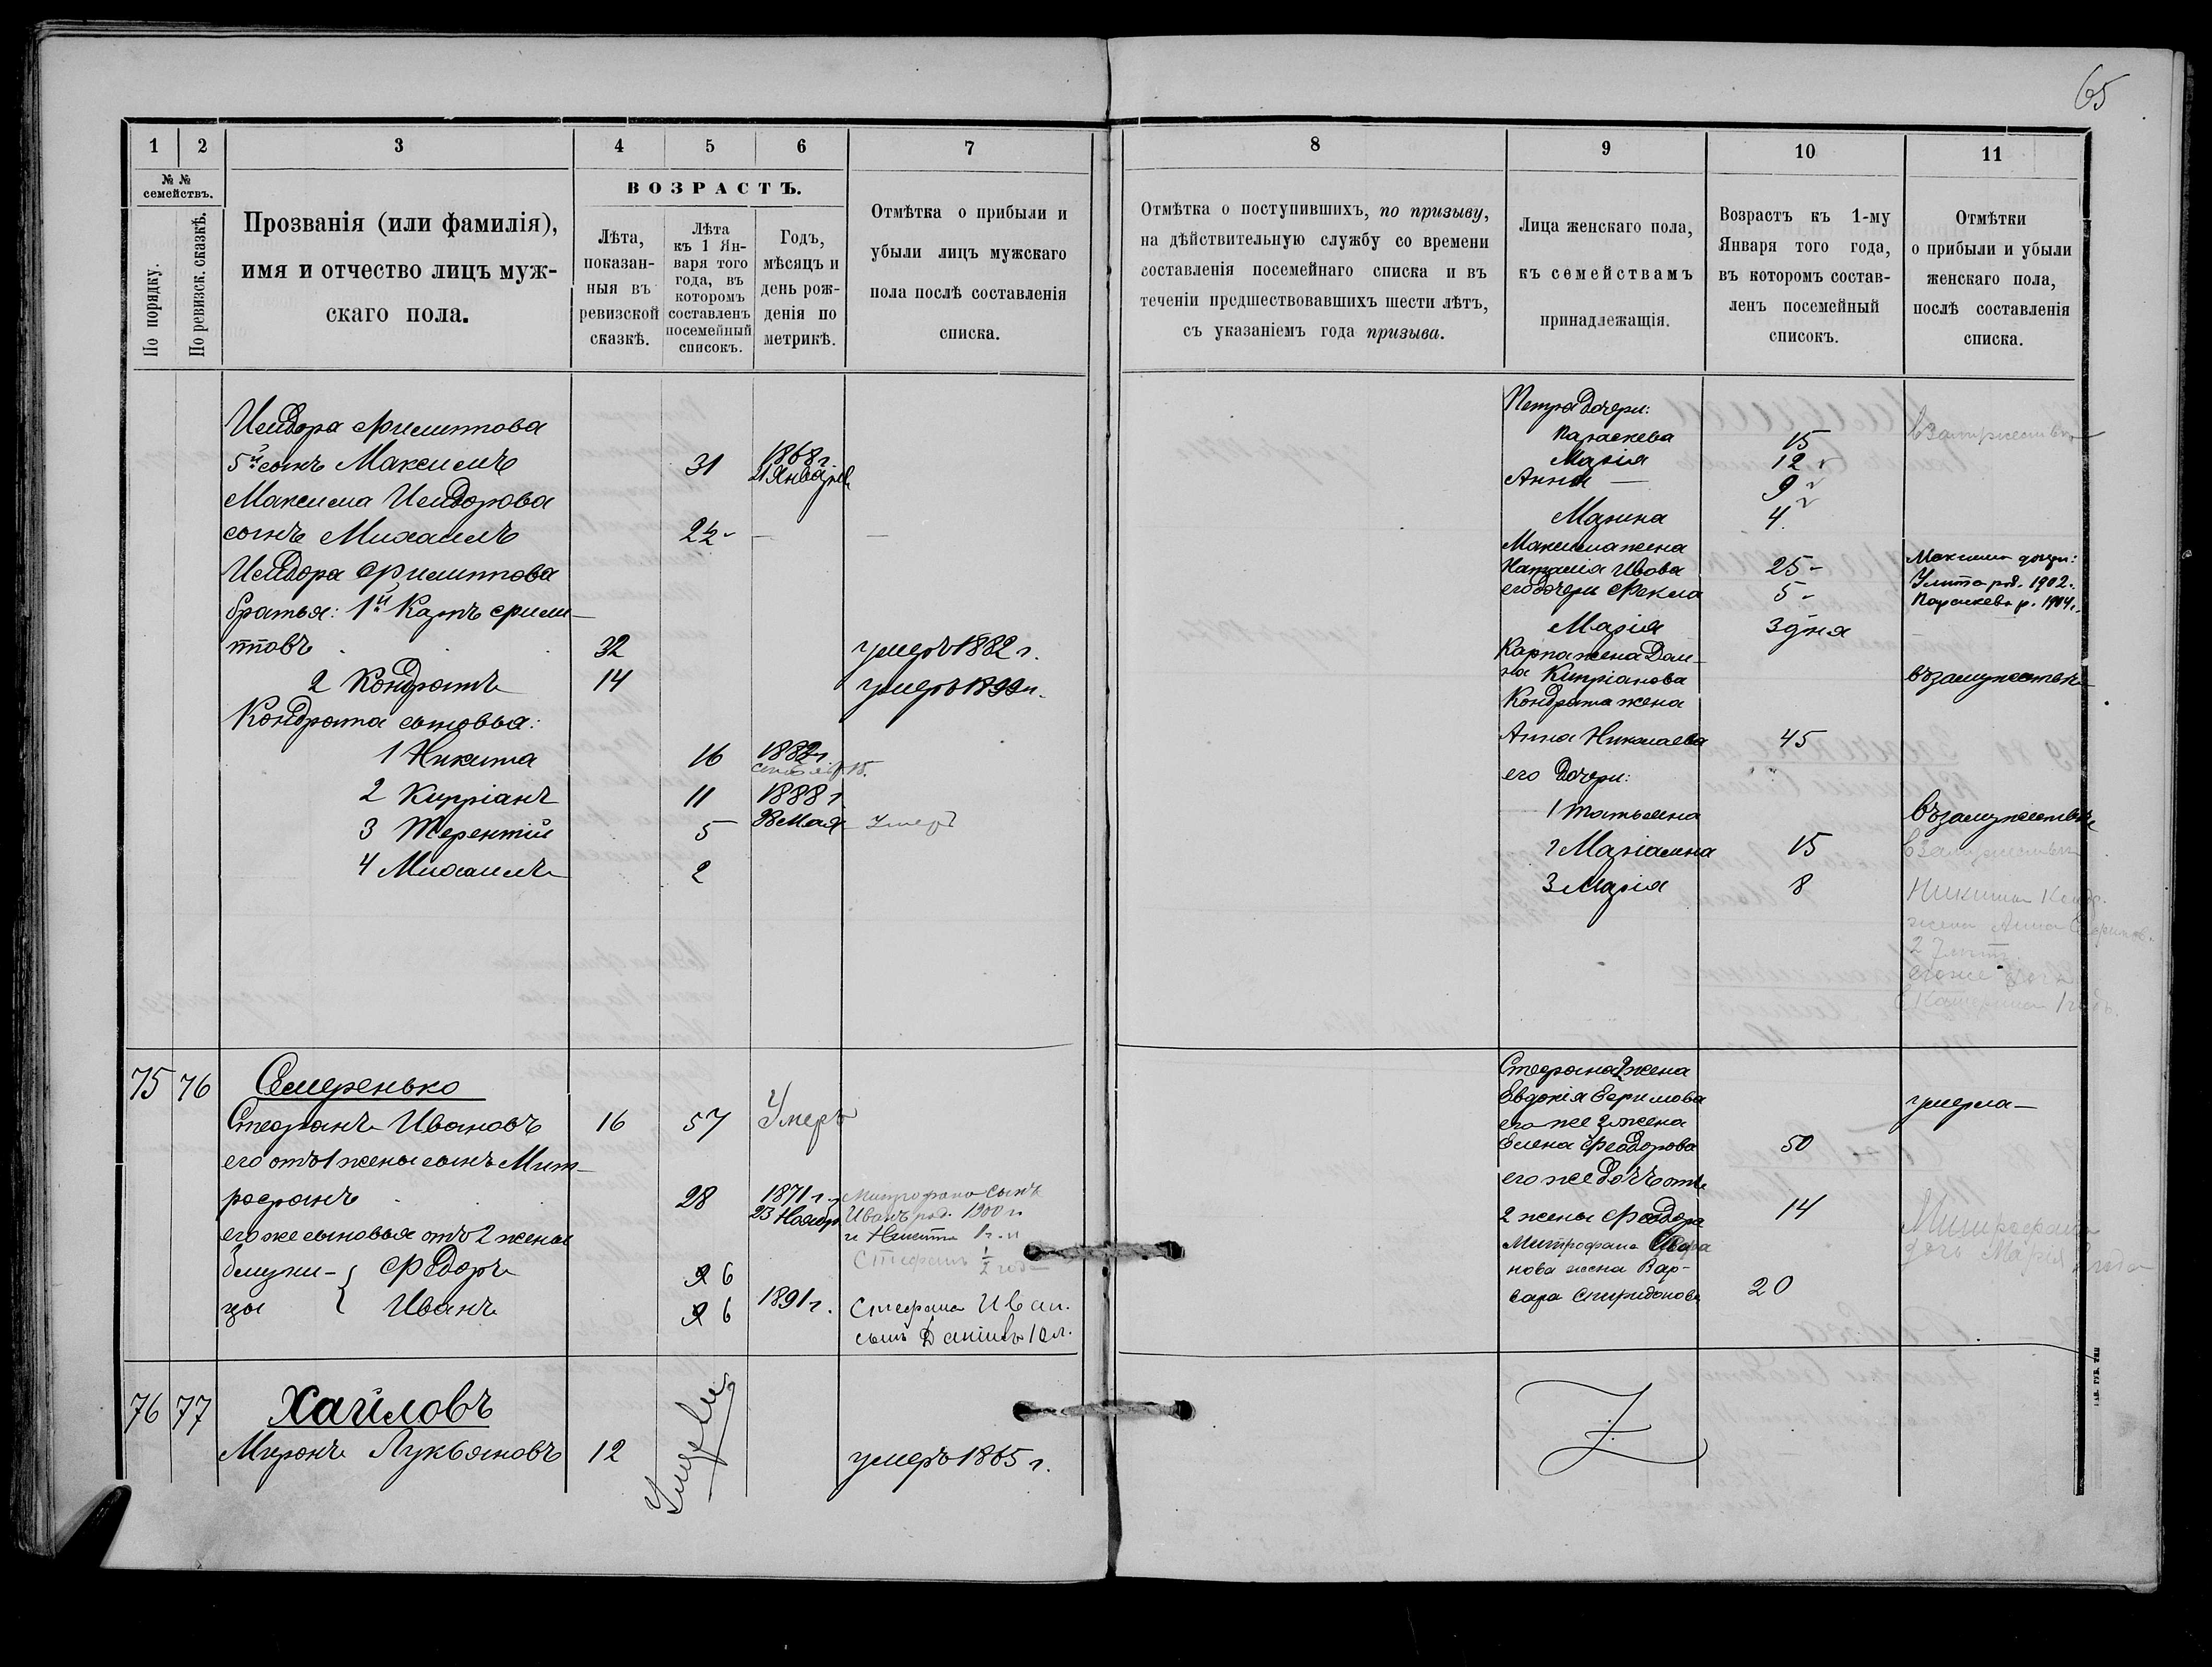 65
1
2
3
4
5
6
7
№ №
семействъ.
По порядку.
По ревизск. сказкѣ.
Прозванія (или фамилія),
имя и отчество лицъ муж-
скаго пола.
ВОЗРАСТЪ.
Лѣта,
показан-
ныя въ
ревизской
сказкѣ.
Лѣта
къ 1 Ян-
варя того
года, въ
которомъ
составленъ
посемейный
списокъ.
Годъ,
мѣсяцъ и
день рож-
денія по
метрикѣ.
Отмѣтка о прибыли и
убыли лицъ мужскаго
пола послѣ составленія
списка.
Исидора Филиппова
5й сынъ Максимъ 31 1868 г. 21 Января
Максима Исидорова
сынъ Михаилъ
Исидора Филиппова
братья: 1й Карпъ Фили-
пповъ 32 умеръ 1882 г.
2 Кондратъ 14 умеръ 1899 г.
Кондрата сыновья:
1 Никита 16 1882 г.
2 Кипріанъ 11 1888 г.
3 Терентій 5 Умеръ
4 Михаилъ 2
75 76 Семеренько
Стефанъ Ивановъ 16 57 Умеръ
его отъ 1 жены сынъ Мит-
рофанъ 28 1871 г. 23 Ноября
Митрофана сынъ
Иванъ род. 1900 г.
и Никита 1 г.
Стефанъ ½ года
его же сыновья отъ 2 жены
близне- { Федоръ 6
цы { Иванъ 6 1891 г.
Стефана Иван.
сынъ Даніилъ 10 л.
76 77 Хайловъ
Миронъ Лукьяновъ 12 умеръ 1865 г.
Умерли
8
9
10
11
Отмѣтка о поступившихъ, по призыву,
на дѣйствительную службу со времени
составленія посемейнаго списка и въ
теченіи предшествовавшихъ шести лѣтъ,
съ указаніемъ года призыва.
Лица женскаго пола,
къ семействамъ
принадлежащія.
Возрастъ къ 1-му
Января того года,
въ которомъ состав-
ленъ посемейный
списокъ.
Отмѣтки
о прибыли и убыли
женскаго пола,
послѣ составленія
списка.
Петра дочери:
Параскева 15 взамужествѣ
Марія 12
Анна 9
Марина 4
Максима жена
Наталія Ивова 25
его дочери Фекла 5
Максима дочери:
Улита род. 1902.
Параскева р. 1904 г.
Марія 3 дня
Карпа жена Дом-
на Кипріанова взамужествѣ
Кондрата жена
Анна Николаева 45
его дочери:
1 Татьяна взамужествѣ
2 Маріамна 15 взамужествѣ
3 Марія 8
Никита Кондр.
жена Анна
27 лѣтъ
его же дочь
Екатерина 1 годъ.
Стефана 2 жена
Евдокія Ефимова умерла
его же 2 жена
Елена Феодорова 50
его же дочь отъ
2 жены Феодора 14
Митрофана
дочь Марія
нова жена Вар-
вара Спиридонова 20